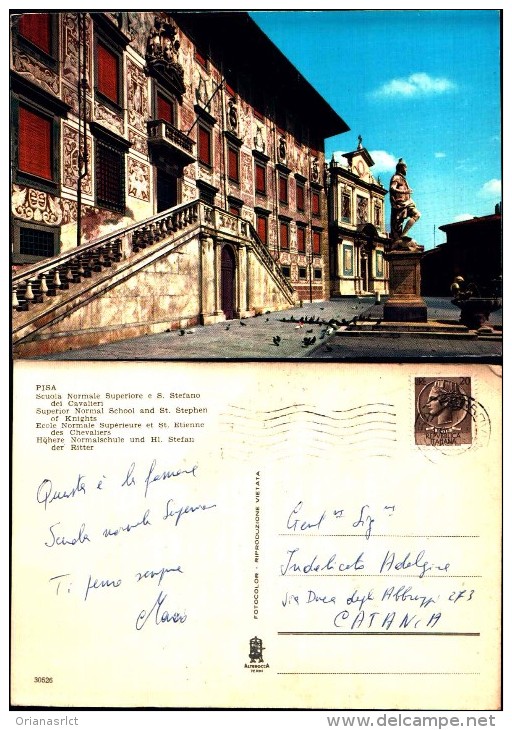 PISA
Scuola Normale Superiore e S. Stefano
dei Cavalieri
Superior Normal School and St. Stephen
of Knights
Ecole Normale Supérieure et St. Etienne
des Chevaliers
Höhere Normalschule und Hl. Stefan
der Ritter
Questa è la famosa
Scuola normale Superiore
Ti penso sempre
30526
FOTOCOLOR - RIPRODUZIONE VIETATA
ALTEROCCA
TERNI
20
REPVBBLICA
ITALIANA
Gent ma Sig na
Indelicato Adalgisa
Via Duca degli Abbruzzi 273
CATANIA
Orianasrlct
www.delcampe.net